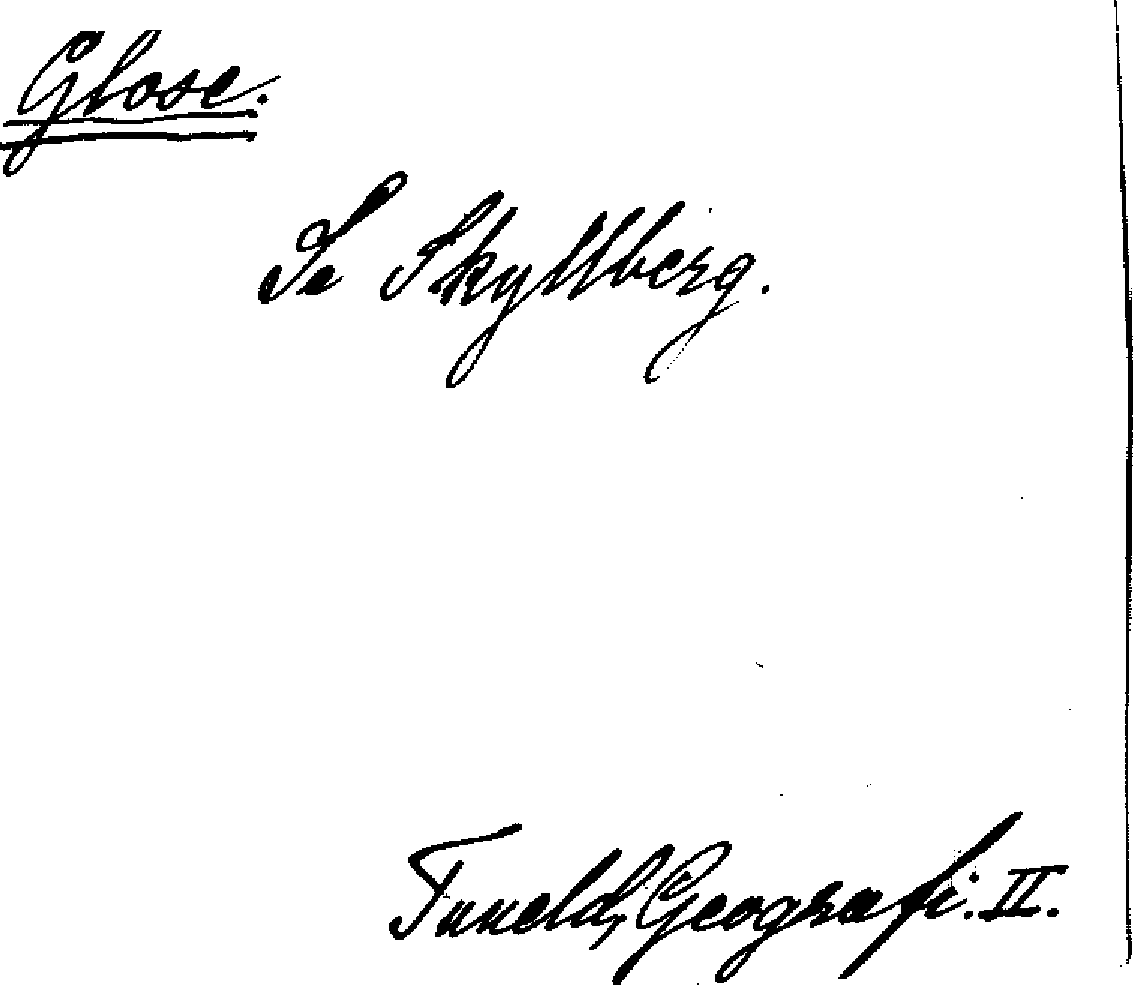 Glose.
Se Skyllberg.
Tuneld, Geografi. II.